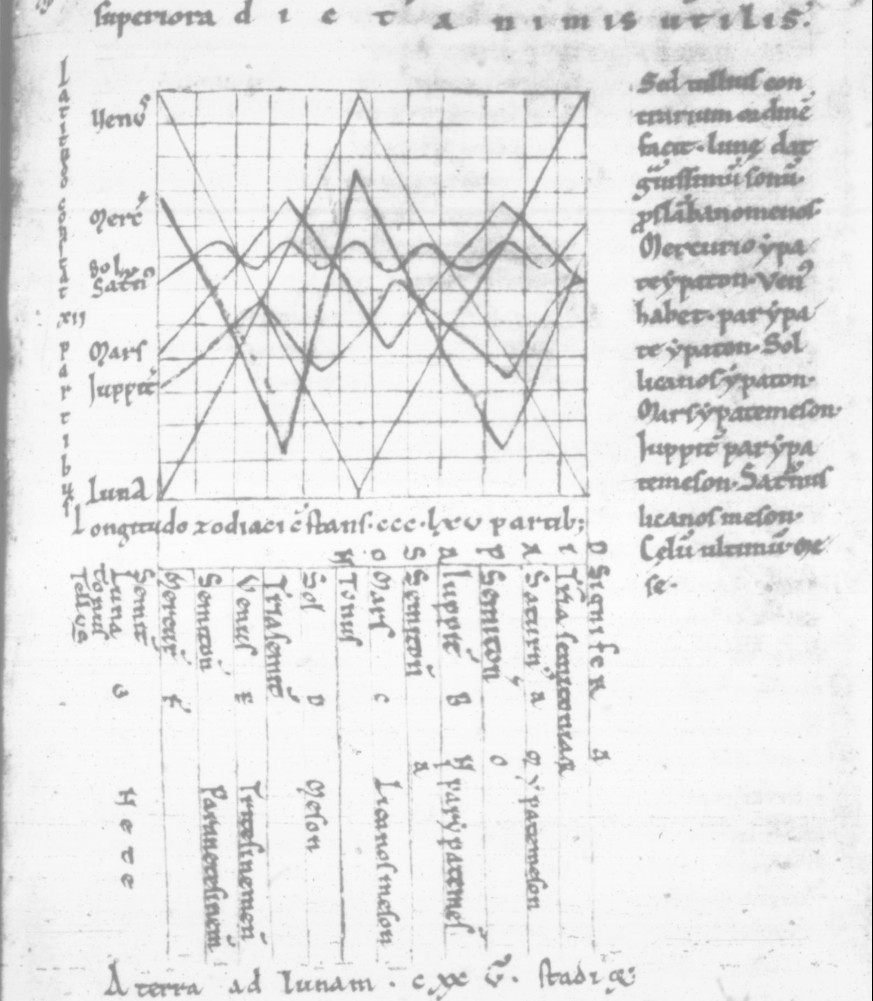 superiora dicta nimis utilis.
Latitudo constat xii partibus
Venus
Merc
Sol
Satn
Mars
Juppit
Luna
Longitudo zodiaci cstans ccc lxv partib;
Sed tullius con
trarium ordine
facit. lune dat
g̃uissimũ sonũ.
pslãbanomenos.
Mercurio ypa
te ypaton. Ven⁹
habet. parypa
te ypaton. Sol
licanos ypaton.
Mars ypatemeson.
Juppit̃ parypa
temeson. Sat̃nus
licanos meson.
Celũ ultimũ. me
se.
Tellus
Tonus
Luna
Semit̃
Mercur̃
Semiton̄
Venus E
Tria semit̃
Sol D
Tonus
Mars C
Semiton̄
Juppit̃ B
Semiton
Saturn⁹ A
Tria semitonia
Signifer A
Nete
Paranetesinem̄
Tritesinemen̄
Meson
Licanos meson
Parypatemes̄
Ypatemeson
A terra ad lunam. c xx v. stadia